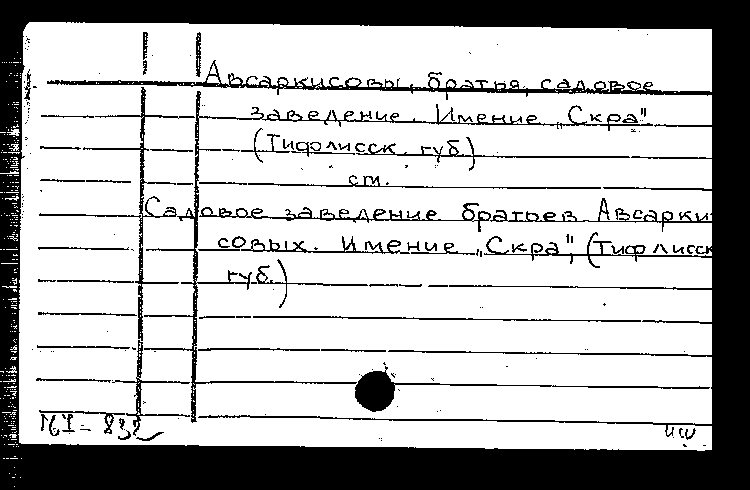 Авсаркисовы, братья, садовое
заведение. Имение „Скра"
(Тифлисск. губ.)
см.
Садовое заведение братьев Авсарки
совых. Имение „Скра", (Тифлисск
губ.)
- 832